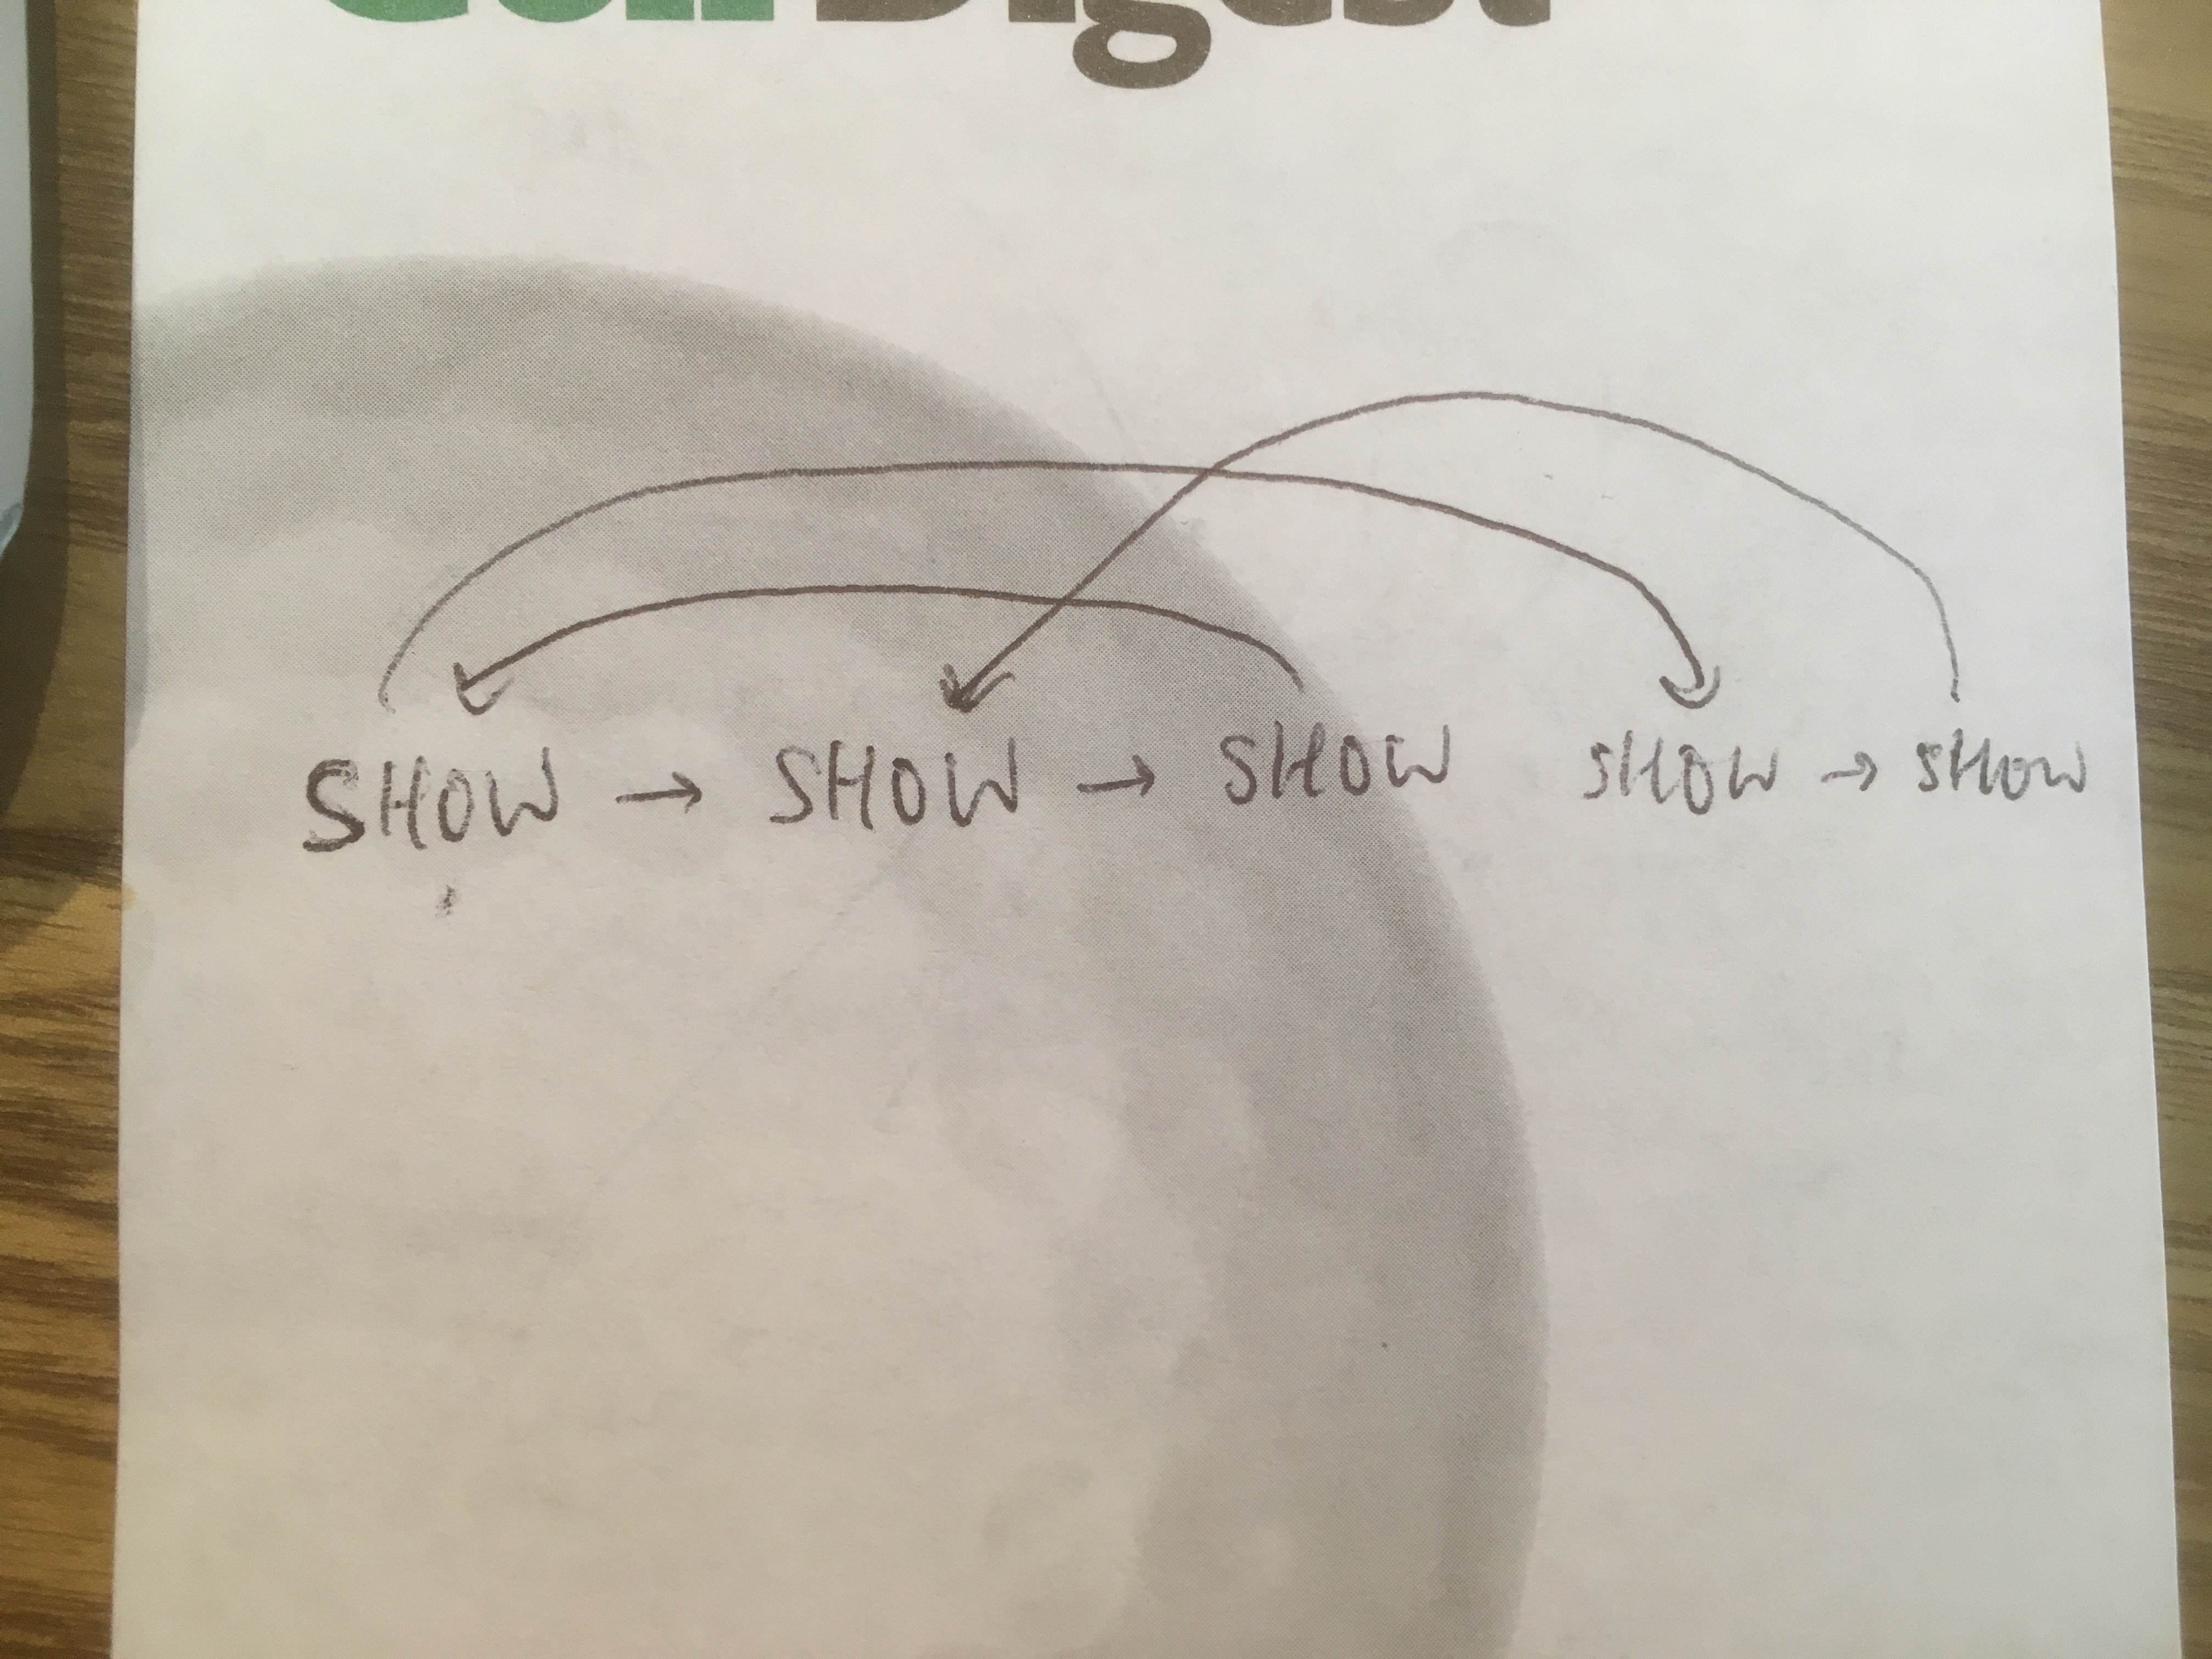 Digest
SHOW → SHOW → SHOW SHOW → SHOW